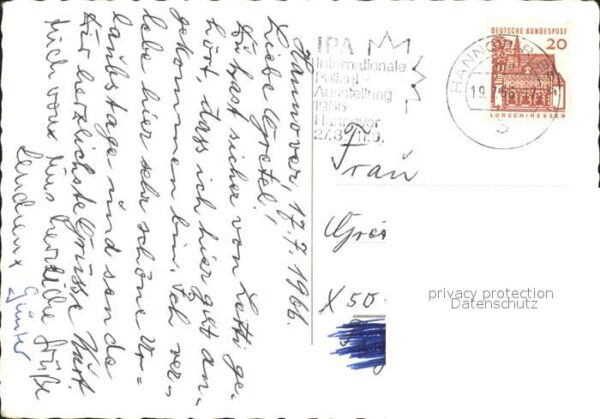 Hannover, 17.7.1966.
Liebe Gretel!
Du hast sicher von Lotti ge-
hört, dass ich hier gut an-
gekommen bin. Ich ver-
lebe hier sehr schöne Ur-
laubstage und sende
Dir herzlichste Grüsse Kurt
Auch von uns herzliche Grüße
Günter
IPA
Internationale
Polizei-
Ausstellung
1966
Hannover
27.8.-11.9.
HANNOVER
19.7.66
DEUTSCHE BUNDESPOST
20
LORSCH/HESSEN
Frau
Gre
X 50
privacy protection
Datenschutz